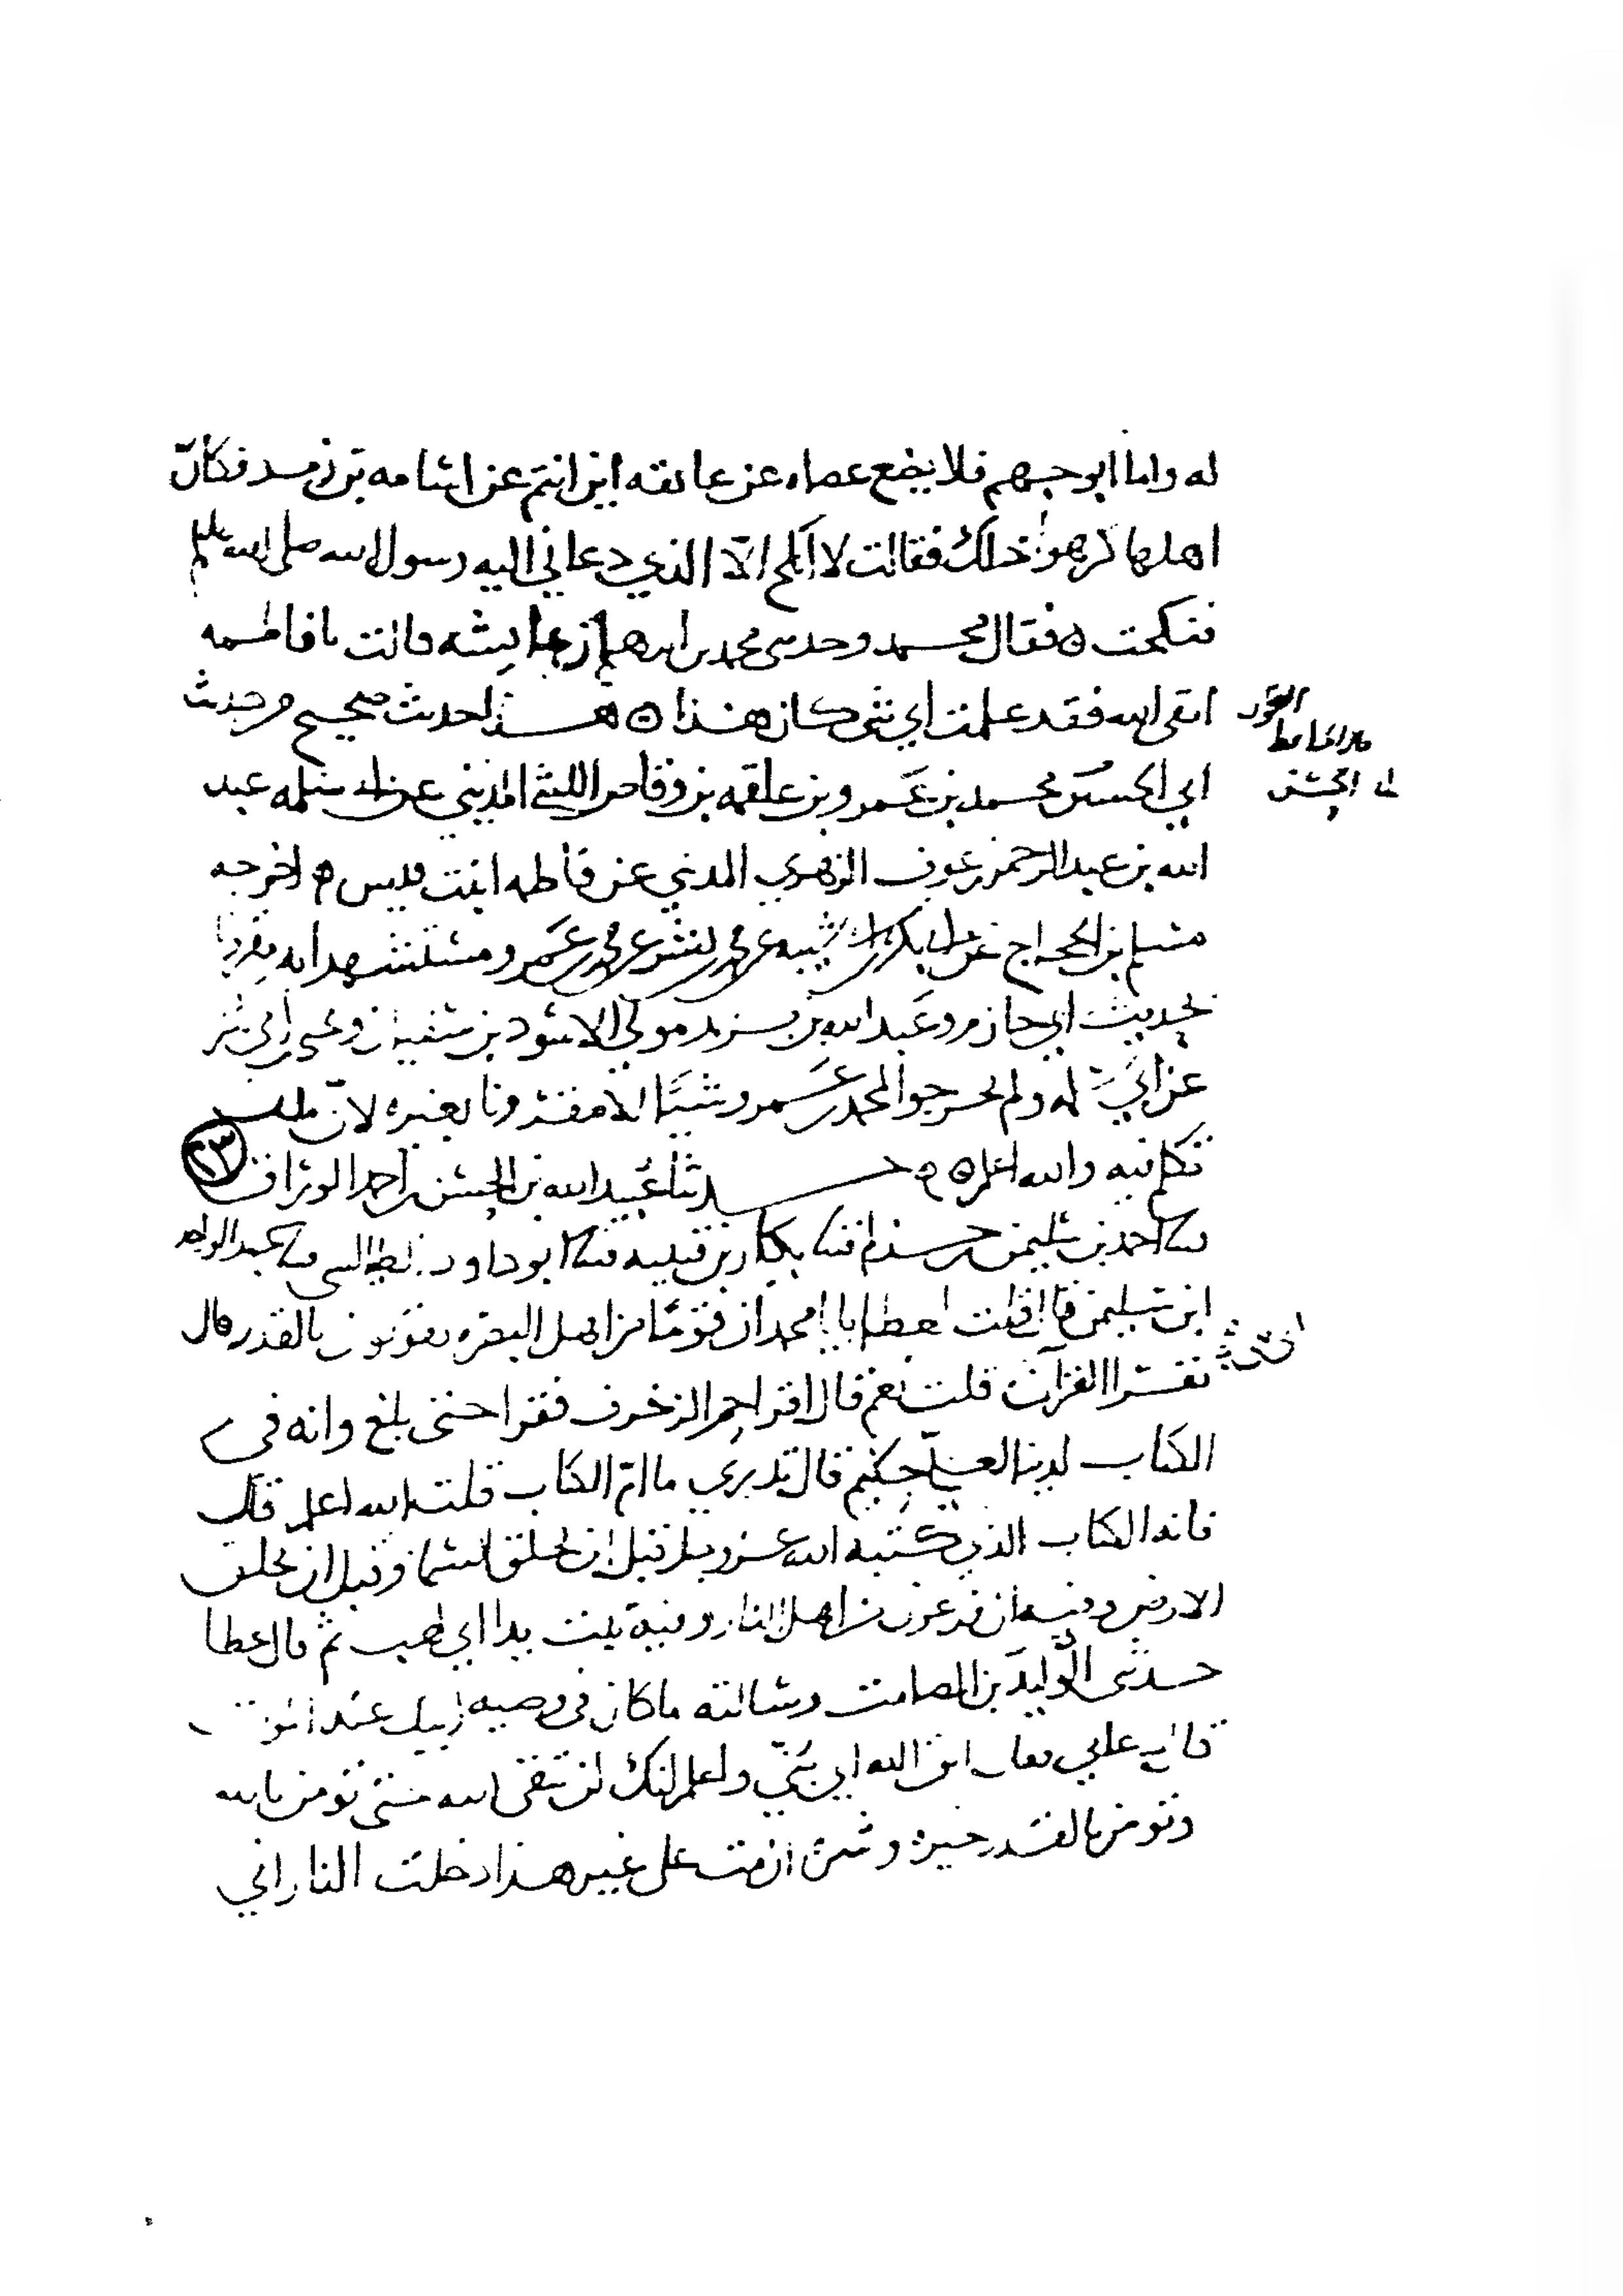 له واما ابو جهم فلا يضع عصاه عن عاتقه اين انتم عن اسامه بن زيد فكانّ
اهلها كرهوا ذلك فقالت لا انكح الّا الذي دعاني اليه رسول الله صلى الله عليه وسلم
فنكحت ه فقال محمد وحدثني محمد بن ابرهيم ان عايشه قالت يا فاطمه
اتقى الله فقد علمت اي شى كان هذا ه هذا حديث صحيح من حديث
ابي الحسن محمد بن عمرو بن علقمه بن وقاص الليثي المديني عن ابي سلمه عبد
الله بن عبد الرحمن بن عوف الزهري المدني عن فاطمه ابنت قيس ه اخرجه
مسلم بن الحجاج عن ابي بكر بن ابي شيبه عن محمد بن بشر عن محمد بن عمرو مستشهدا به مقرونا
بحديث ابي حازم وعبد الله بن يزيد مولى الاسود بن سفيان ويحيى بن ابي كثير
عن ابي سلمه ولم يخرجوا لمحمد بن عمرو شيًا الا مقرونا بغيره لانّ
تكلم فيه والله اعلم ه حدثنا عبيد الله بن الحسن بن احمد الوراق
ثنا احمد بن سليمن بن حذلم ثنا بكار بن قتيبه ثنا ابو داود الطيالسي ثنا عبد الواحد
ابن سليمن قال قلت لعطا يا ابا محمد ان قومًا من اهل البصره يقولون بالقدر قال
تقرا القرآن قلت نعم قال اقرا حم الزخرف فقرا حتى بلغ وانه في
الكتاب لدينا لعليّ حكيم قال تدري ما امّ الكتاب قلت الله اعلم قال
فانه الكتاب الذي كتبه الله عز وجل قبل ان يخلق السما وقبل ان يخلق
الارض وفيه ان فرعون من اهل النار وفيه تبت يدا ابي لهب ثم قال عطا
حدثني الوليد بن الصامت وسالته ما كان في وصيه ابيك عند الموت
علي فقال اتق الله اي بنيّ واعلم انك لن تتقى الله حتى تومن بالله
وتومن بالقدر خيره وشره ان مت على غير هذا دخلت النار اني